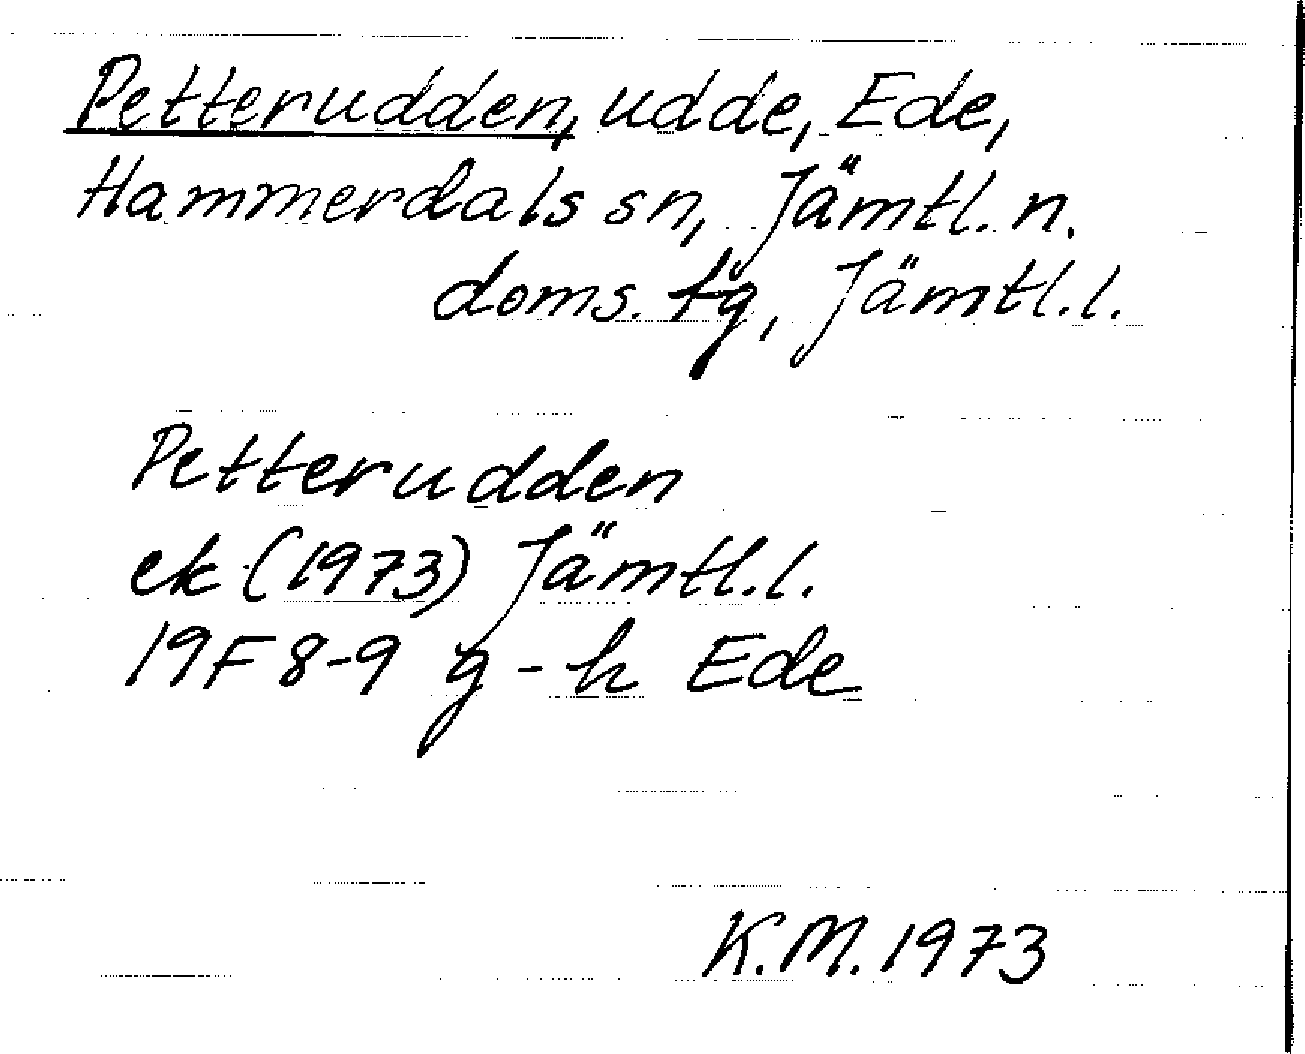 Petterudden, udde, Ede,
Hammerdals sn, Jämtl. n.
doms. tg, Jämtl. l.
Petterudden
ek (1973) Jämtl. l.
19F 8-9 g-h Ede
K.M. 1973